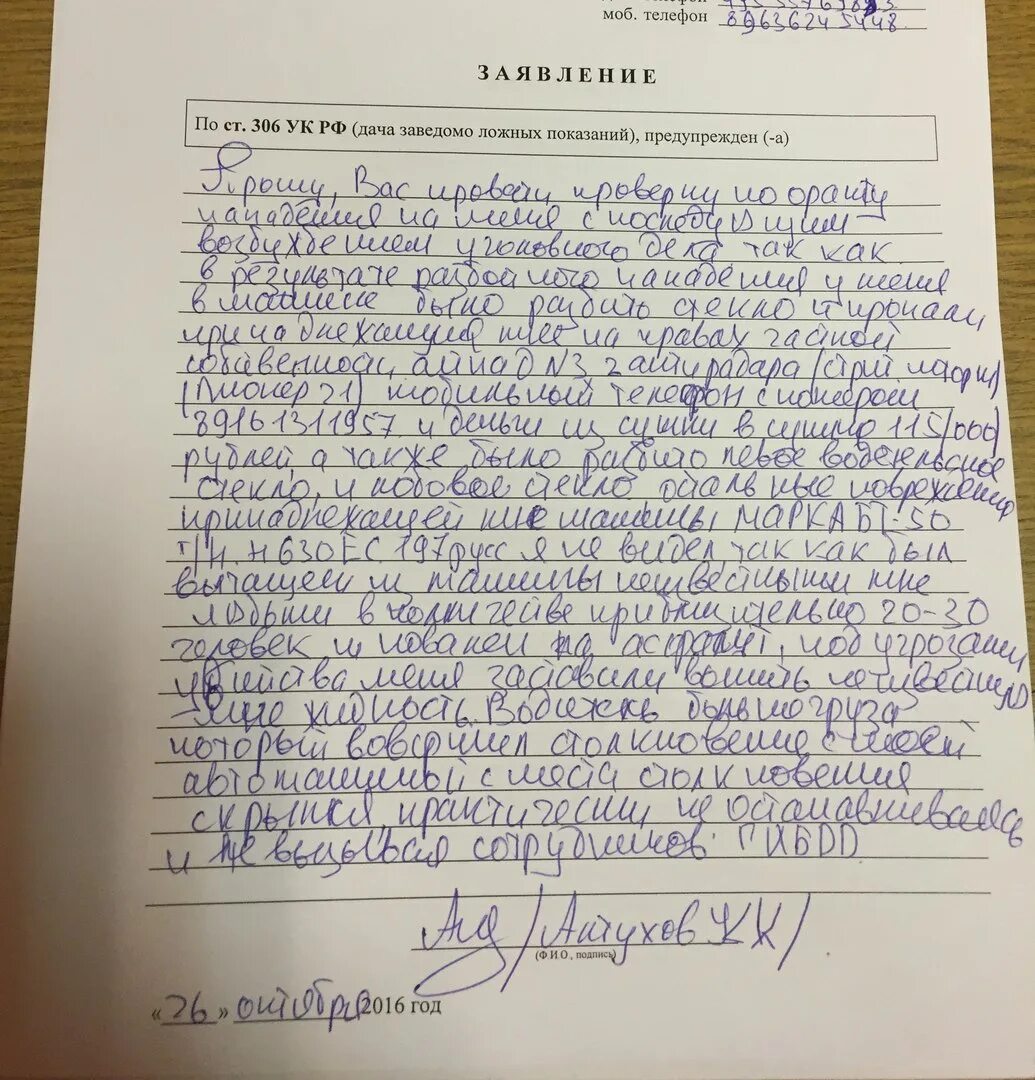 моб. телефон 89636245448
ЗАЯВЛЕНИЕ
По ст. 306 УК РФ (дача заведомо ложных показаний), предупрежден (-а)
Прошу, Вас провести проверку по факту
нападения на меня с последующим
возбуждением уголовного дела так как
в результате разбойного нападения у меня
в машине было разбито стекло и пропали
принадлежащия мне на правах частной
собственности, айпад N3 2 антирадара (стрит шторм)
(Пионер 21) мобильный телефон с номером
89161311957 и деньги из сумки в сумме 115/000)
рублей, а также было разбито левое водительское
стекло, и лобовое стекло остальные повреждения
принадлежащей мне машины МАРКА БТ-50
Г/Н. Н630ЕС 197русс я не видел так как был
вытащен из машины неизвестными мне
людьми в количестве приблизительно 20-30
человек и повален на асфальт, под угрозами
убийства меня заставили выпить неизвестную
мне жидкость. Водитель большегруза
который совершил столкновение с моей
автомашиной с места столкновения
скрылся, практически не останавливаясь
и не вызывая сотрудников ГИБДД
/Алтухов К К/
(Ф.И.О., подпись)
«26» октября 2016 год